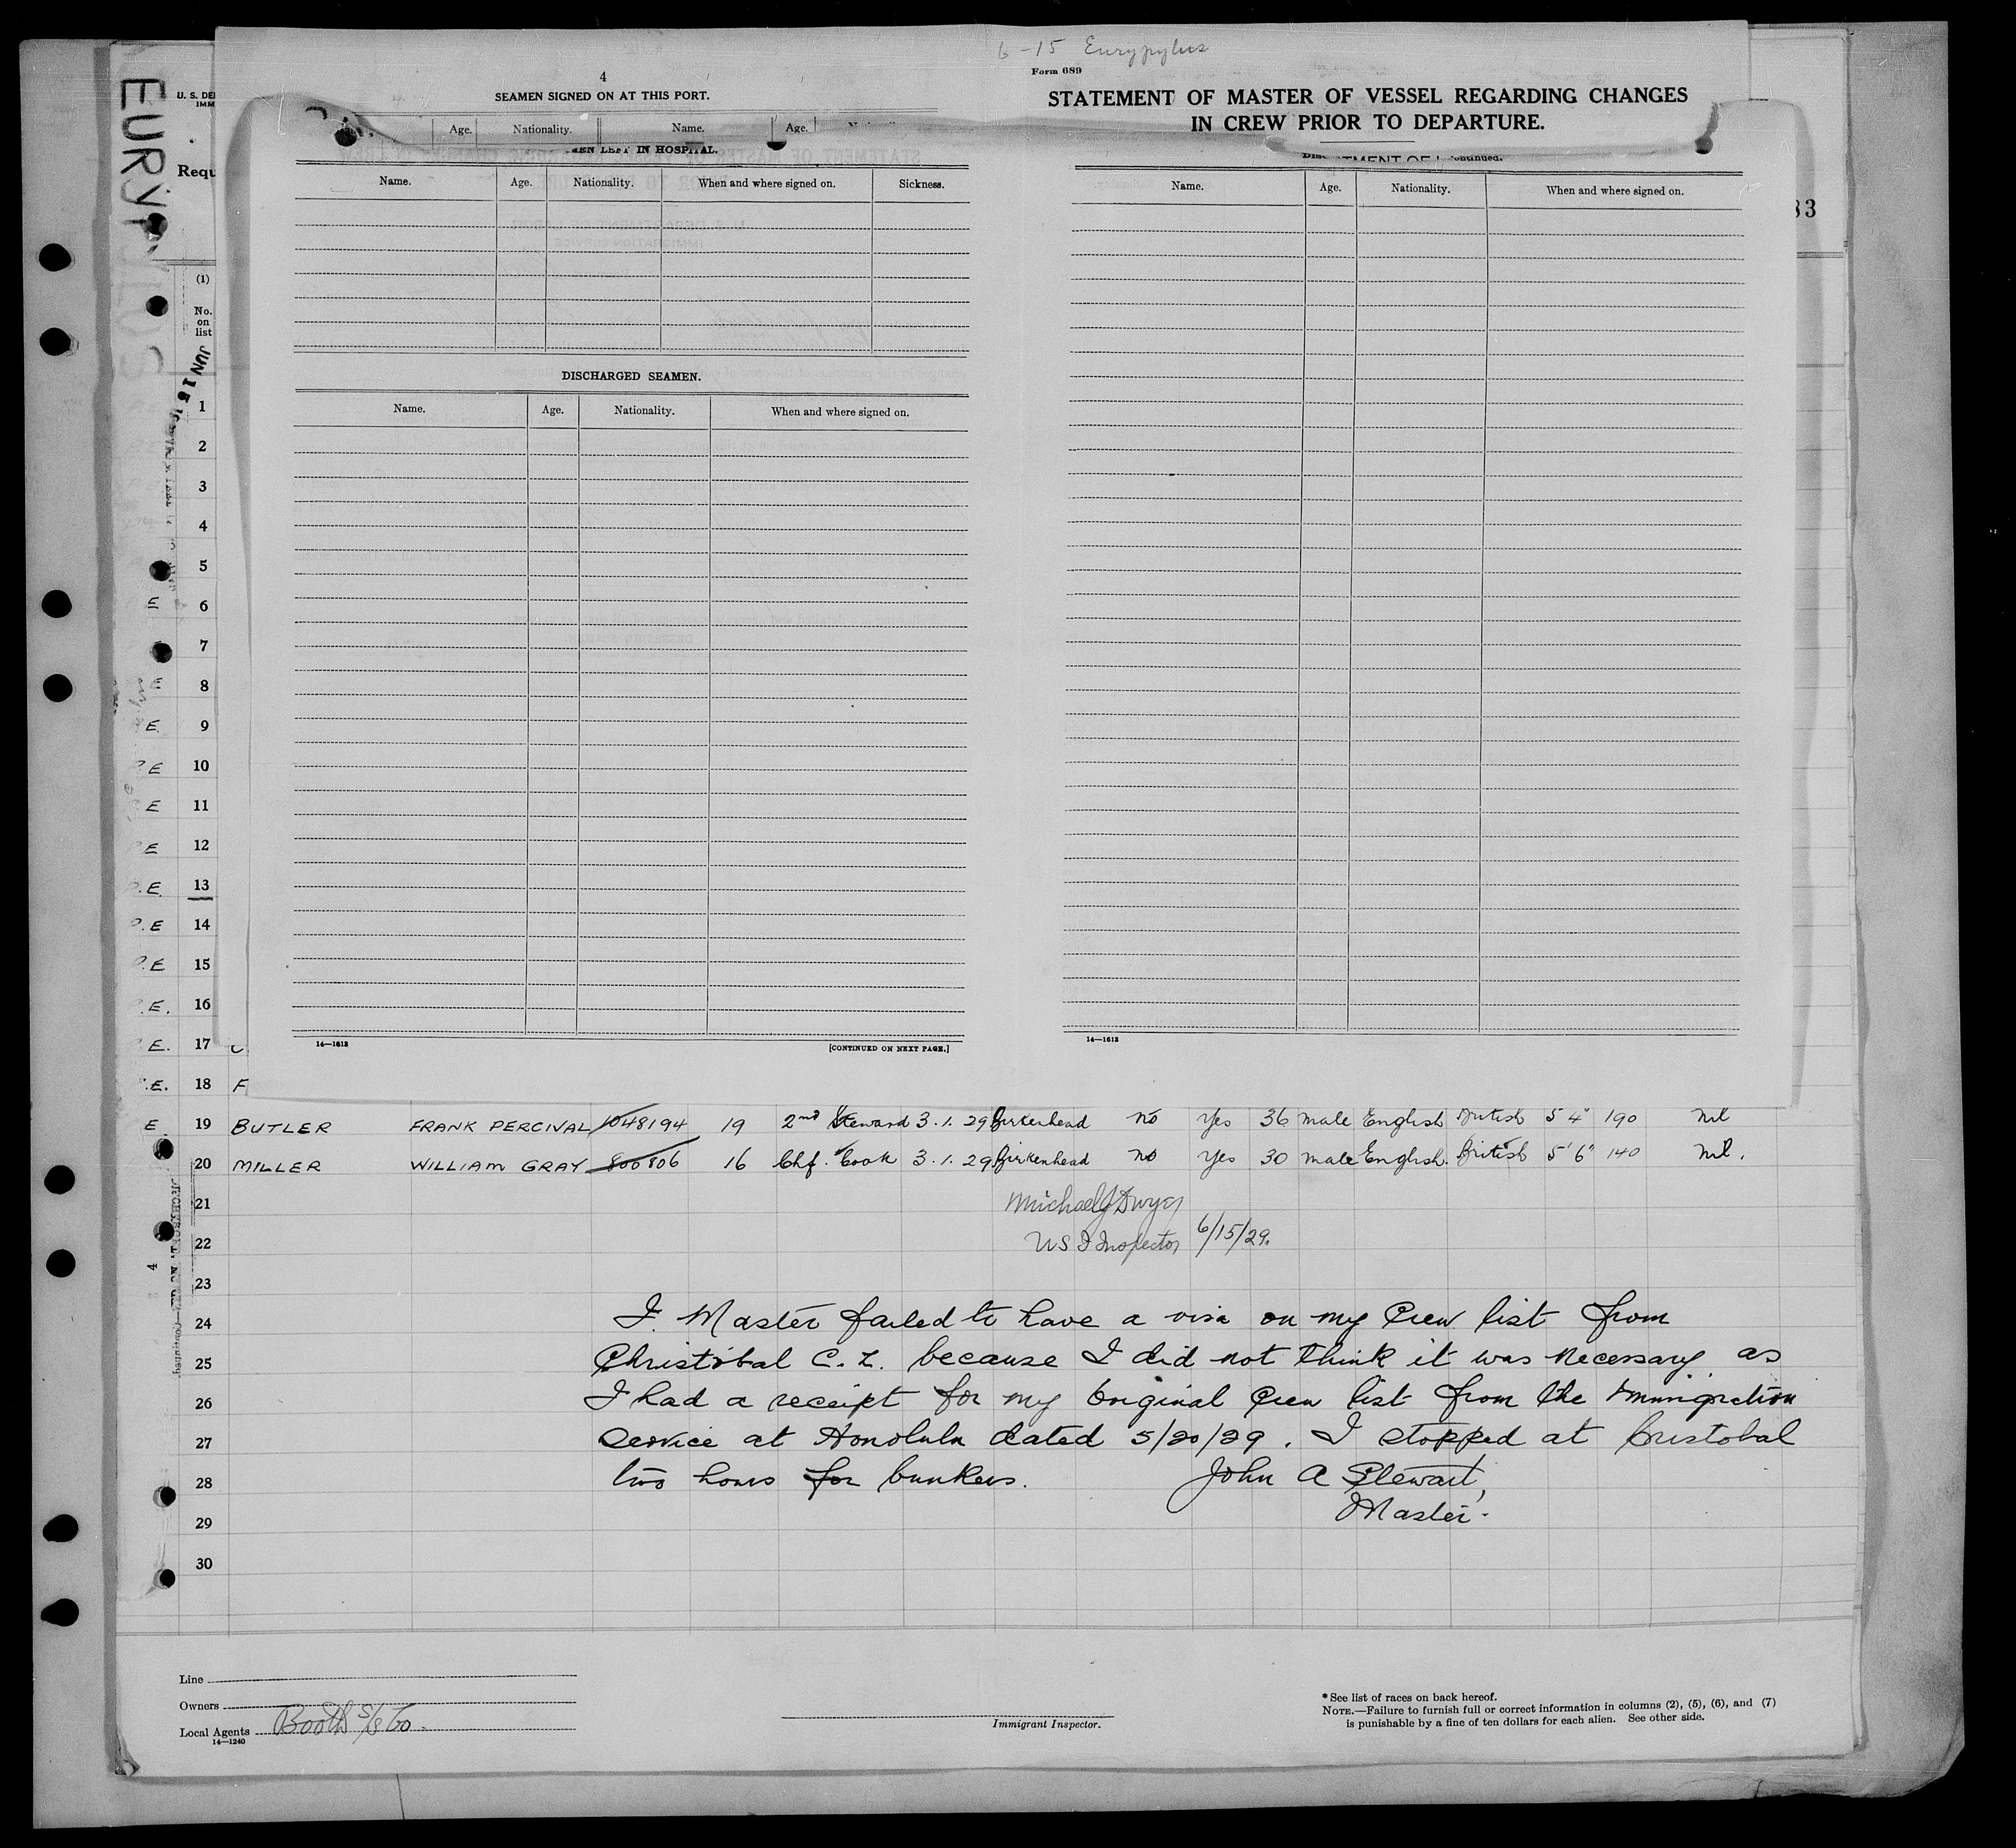 6-15 Eurypylus
Form 689
4
SEAMEN SIGNED ON AT THIS PORT.
STATEMENT OF MASTER OF VESSEL REGARDING CHANGES
IN CREW PRIOR TO DEPARTURE.
EURYPYLUS
U. S. DE
IMM
Requ
33
Age. Nationality. Name. Age.
LEFT IN HOSPITAL.
Name. Age. Nationality. When and where signed on. Sickness.
Name. Age. Nationality. When and where signed on.
DISCHARGED SEAMEN.
Name. Age. Nationality. When and where signed on.
(1)
No.
on
list
JUN 15
1
2
3
4
5
E 6
7
E 8
E. 9
E 10
E 11
E 12
.E. 13
.E 14
.E 15
.E. 16
E. 17
.E. 18 F
14—1613
[CONTINUED ON NEXT PAGE.]
14—1613
E. 19 BUTLER FRANK PERCIVAL 1048194 19 2nd Steward 3.1.29 Birkenhead no Yes 36 male English British 5 4" 190 nil
20 MILLER WILLIAM GRAY 800806 16 Chf. Cook 3.1.29 Birkenhead no Yes 30 male English. British 5' 6" 140 nil.
21 Michael J Dwyer
22 US I Inspector 6/15/29.
23
24 I. Master failed to have a visa on my Crew list from
25 Christobal C.Z. because I did not think it was necessary as
26 I had a receipt for my original Crew list from the Immigration
27 Service at Honolulu dated 5/20/29. I stopped at Cristobal
28 two hours for bunkers. John A Stewart,
29 Master.
30
4
Line
Owners
Local Agents Booth S/S Co.
14—1240
Immigrant Inspector.
* See list of races on back hereof.
NOTE.—Failure to furnish full or correct information in columns (2), (5), (6), and (7)
is punishable by a fine of ten dollars for each alien. See other side.